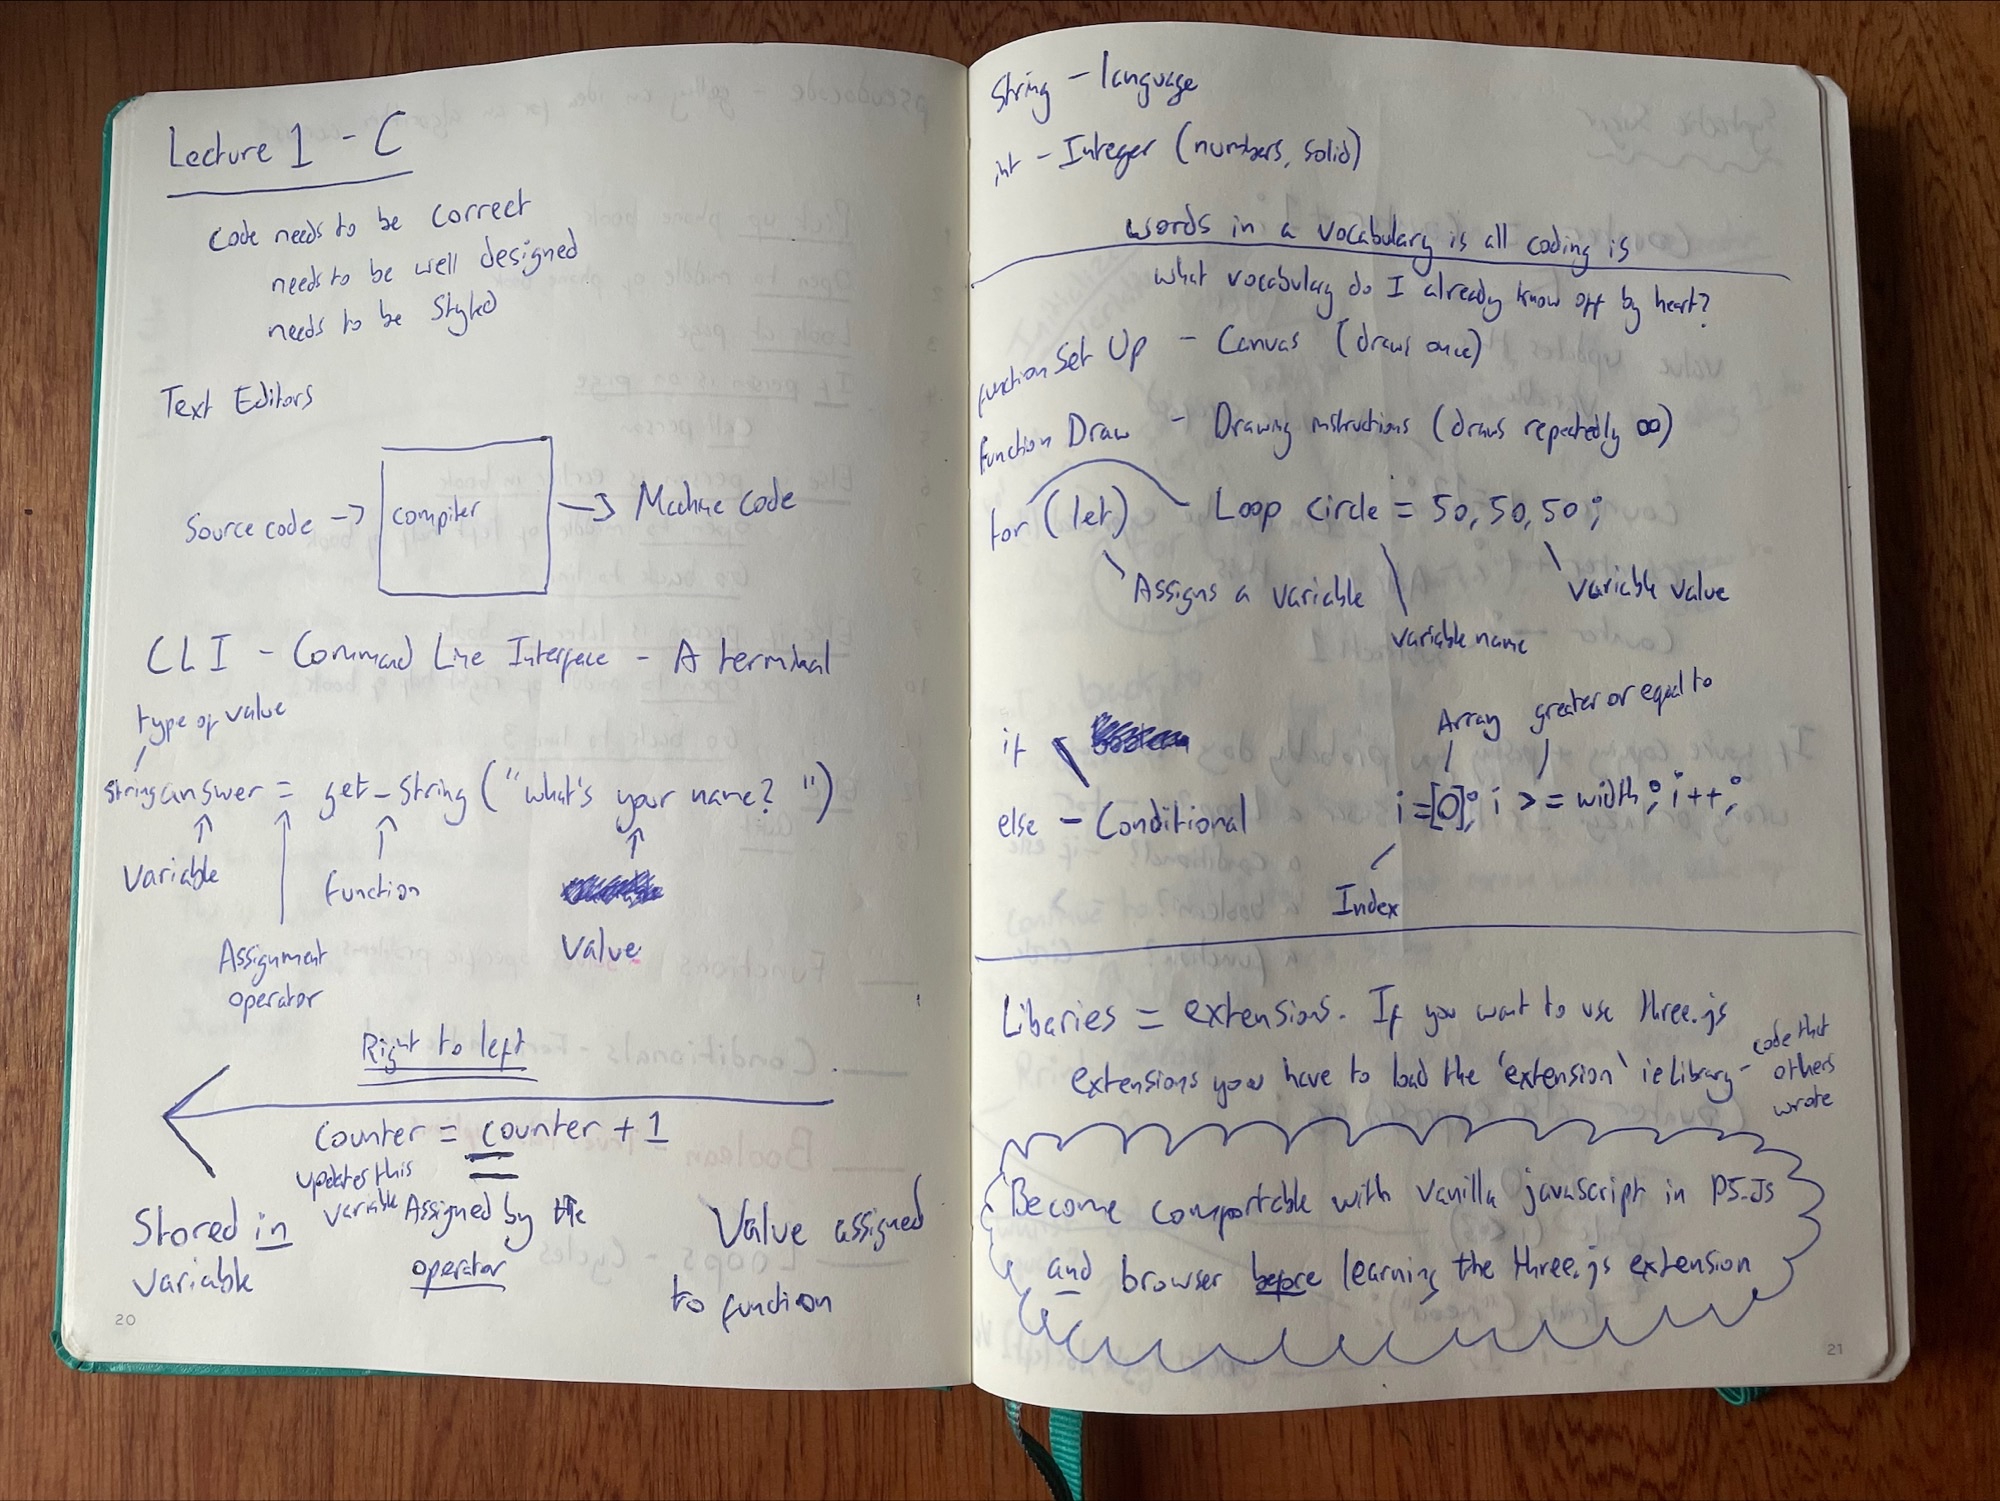 Lecture 1 - C
Code needs to be correct
needs to be well designed
needs to be styled
Text Editors
Source code -> compiler -> Machine code
CLI - Command Line Interface - A terminal
type of value
string answer = get_string ("what's your name? ")
Variable
Function
Value
Assignment
operator
Right to left
Counter = counter + 1
updates this
variable
Stored in
variable
Assigned by the
operator
Value assigned
to function
20
String - language
int - Integer (numbers, solid)
words in a vocabulary is all coding is
What vocabulary do I already know off by heart?
function Set Up - Canvas (draws once)
function Draw - Drawing instructions (draws repeatedly ∞)
for (let) - Loop circle = 50, 50, 50;
Assigns a variable
variable name
variable value
if
else - Conditional
Array
greater or equal to
i =[0]; i >= width; i++;
Index
Libaries = extensions. If you want to use three.js
extensions you have to load the 'extension' ie library - code that
others
wrote
Become comfortable with vanilla javascript in P5.Js
and browser before learning the three.js extension
21